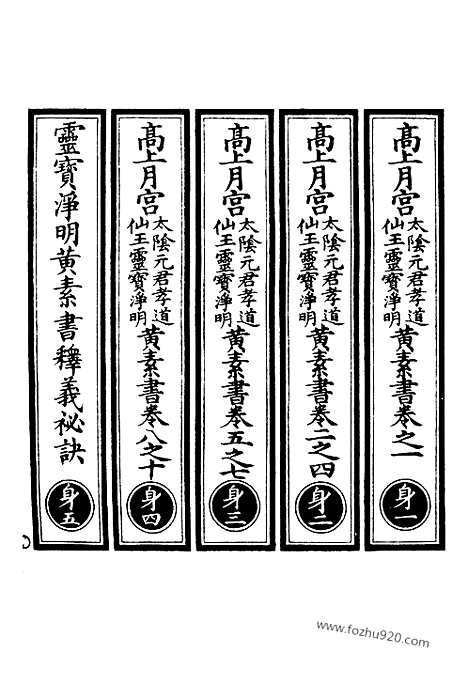 高上月宮太陰元君孝道仙王靈寶淨明黃素書卷之一
身一
高上月宮太陰元君孝道仙王靈寶淨明黃素書卷二之四
身二
高上月宮太陰元君孝道仙王靈寶淨明黃素書卷五之七
身三
高上月宮太陰元君孝道仙王靈寶淨明黃素書卷八之十
身四
靈寶淨明黃素書釋義祕訣
身五
www.fozhu920.com